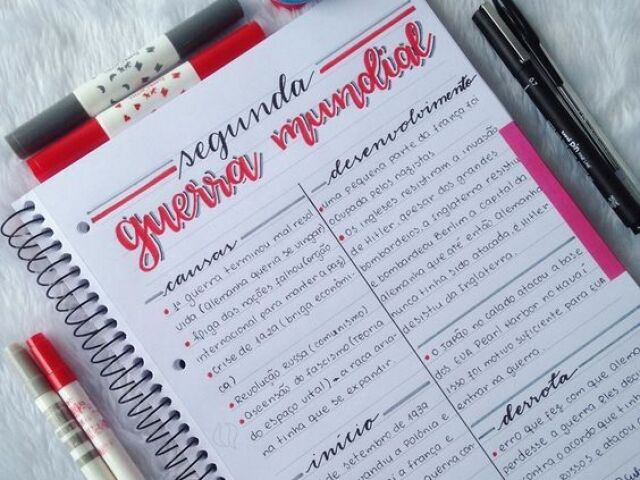 segunda
guerra mundial
causas
• 1ª guerra terminou mal resol
vida (Alemanha queria se vingar)
• liga das nações falhou (órgão
internacional para manter a paz)
• crise de (briga econômi
ca)
• Revolução russa (comunismo)
• ascensão do fascismo (teoria
do espaço vital) → a raça aria
na tinha que se expandir
início
de setembro de 1939
a polônia e
a frança e
guerra com
desenvolvimento
• uma pequena parte da frança foi
ocupada pelos nazistas
• os ingleses resistiram a invasão
de Hitler, apesar dos grandes
bombardeios, a Inglaterra resistiu
e bombardeou Berlin, a capital da
alemanha que até então Alemanha
nunca tinha sido atacada, e Hitler
desistiu da Inglaterra.
• o Japão no calado atacou a base
dos EUA Pearl Harbor no Havaí
isso foi motivo suficiente para EUA
entrar na guerra
derrota
• erro que fez com que Alema
perdesse a guerra eles deci
contra o acordo que tin
e atacou
0.7
uni pin